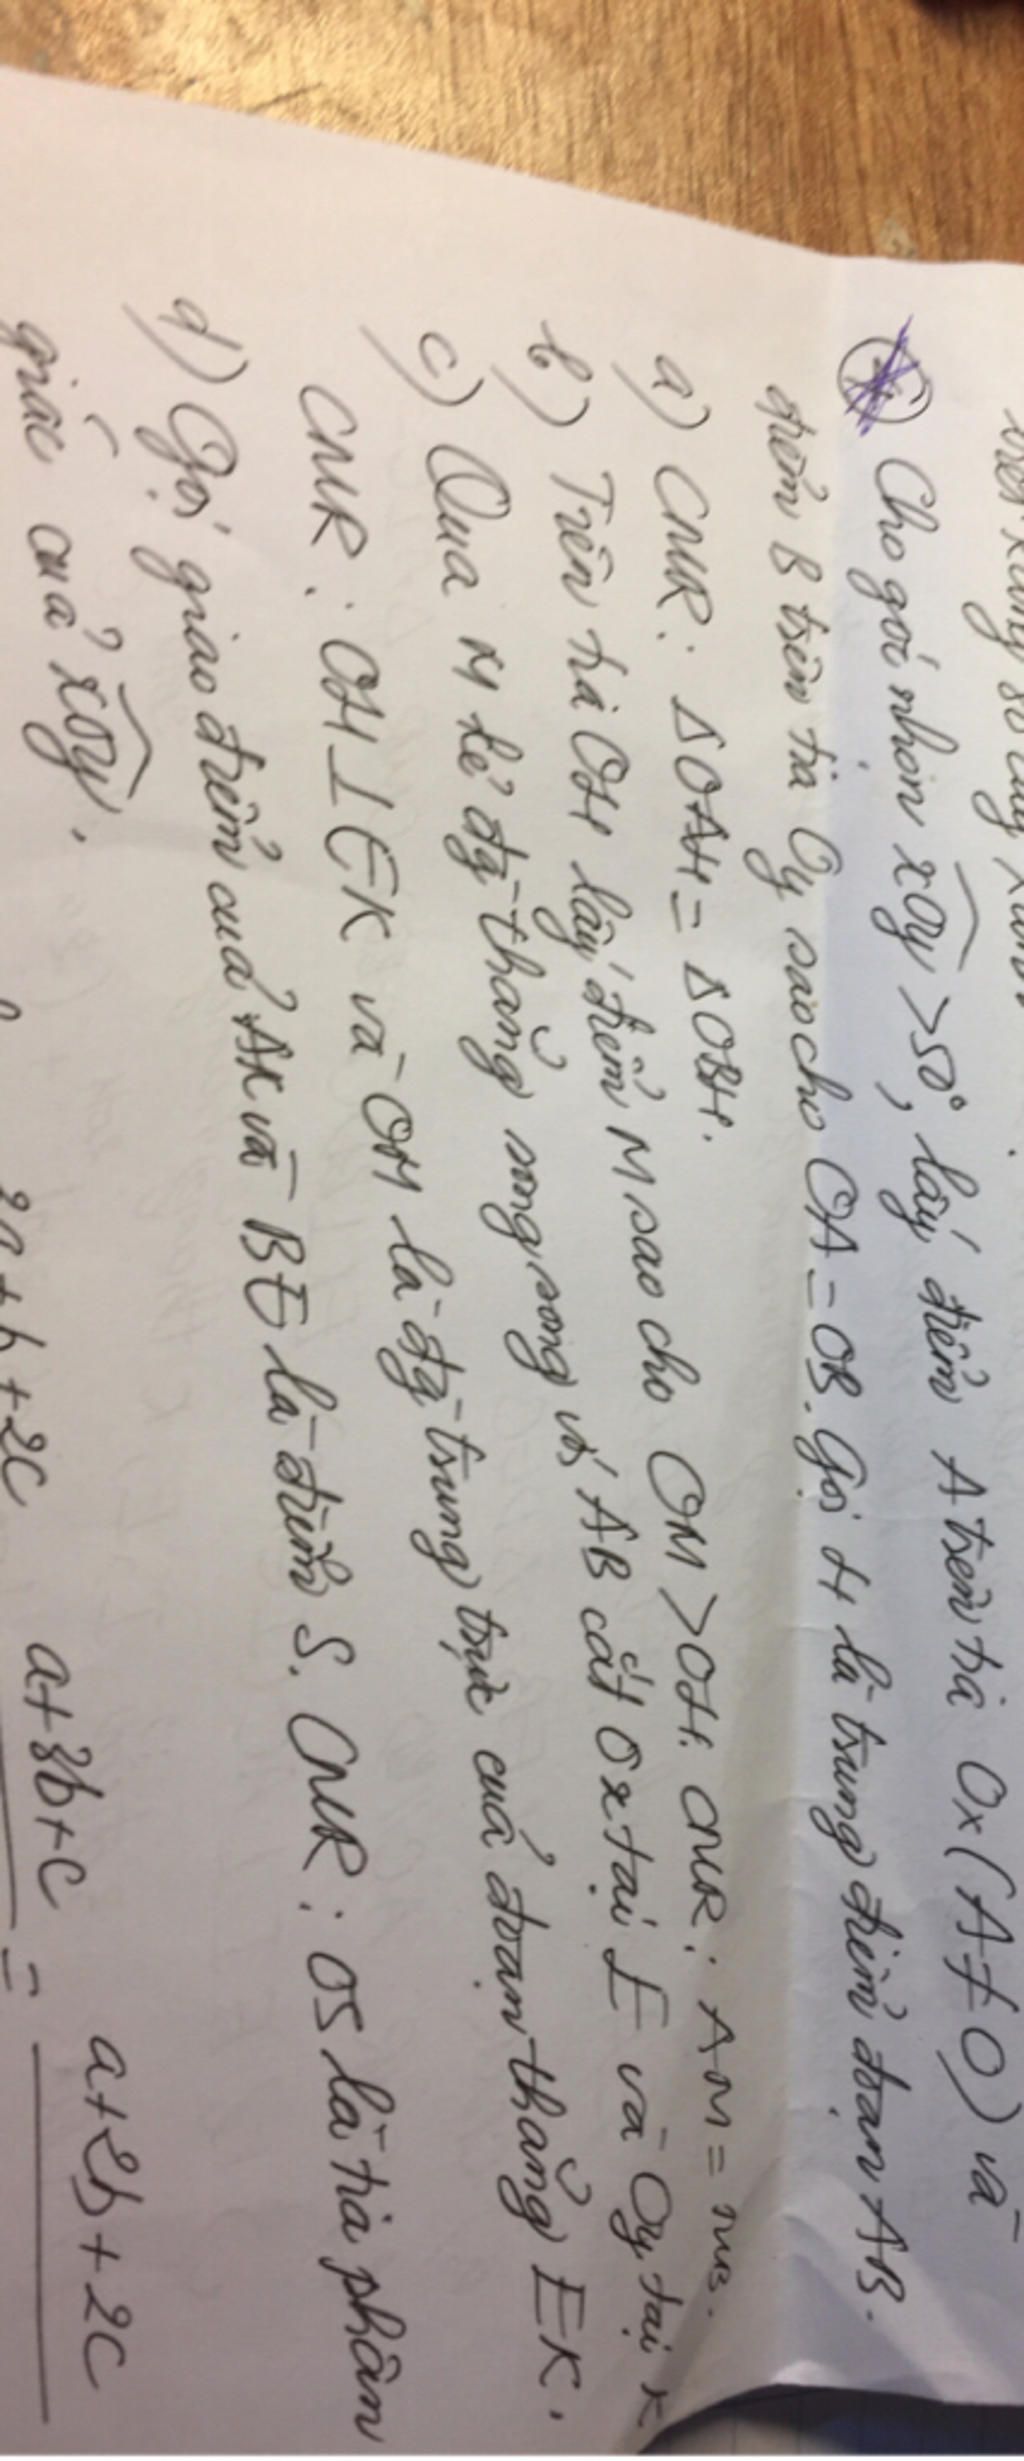 Cho góc nhọn xOy > 50°, lấy điểm A trên tia Ox (A ≠ O) và
điểm B trên tia Oy sao cho OA = OB. Gọi H là trung điểm đoạn AB.
a) CMR: ΔOAH = ΔOBH.
b) Trên tia OH lấy điểm M sao cho OM > OH. CMR: AM = MB.
c) Qua M kẻ đg thẳng song song với AB cắt Ox tại E và Oy tại K.
CMR: OH ⊥ EK và OM là đg trung trực của đoạn thẳng EK.
d) Gọi giao điểm của AK và BE là điểm S. CMR: OS là tia phân
giác của xOy.
a+3b+c = a+2b+2c
+b+2c